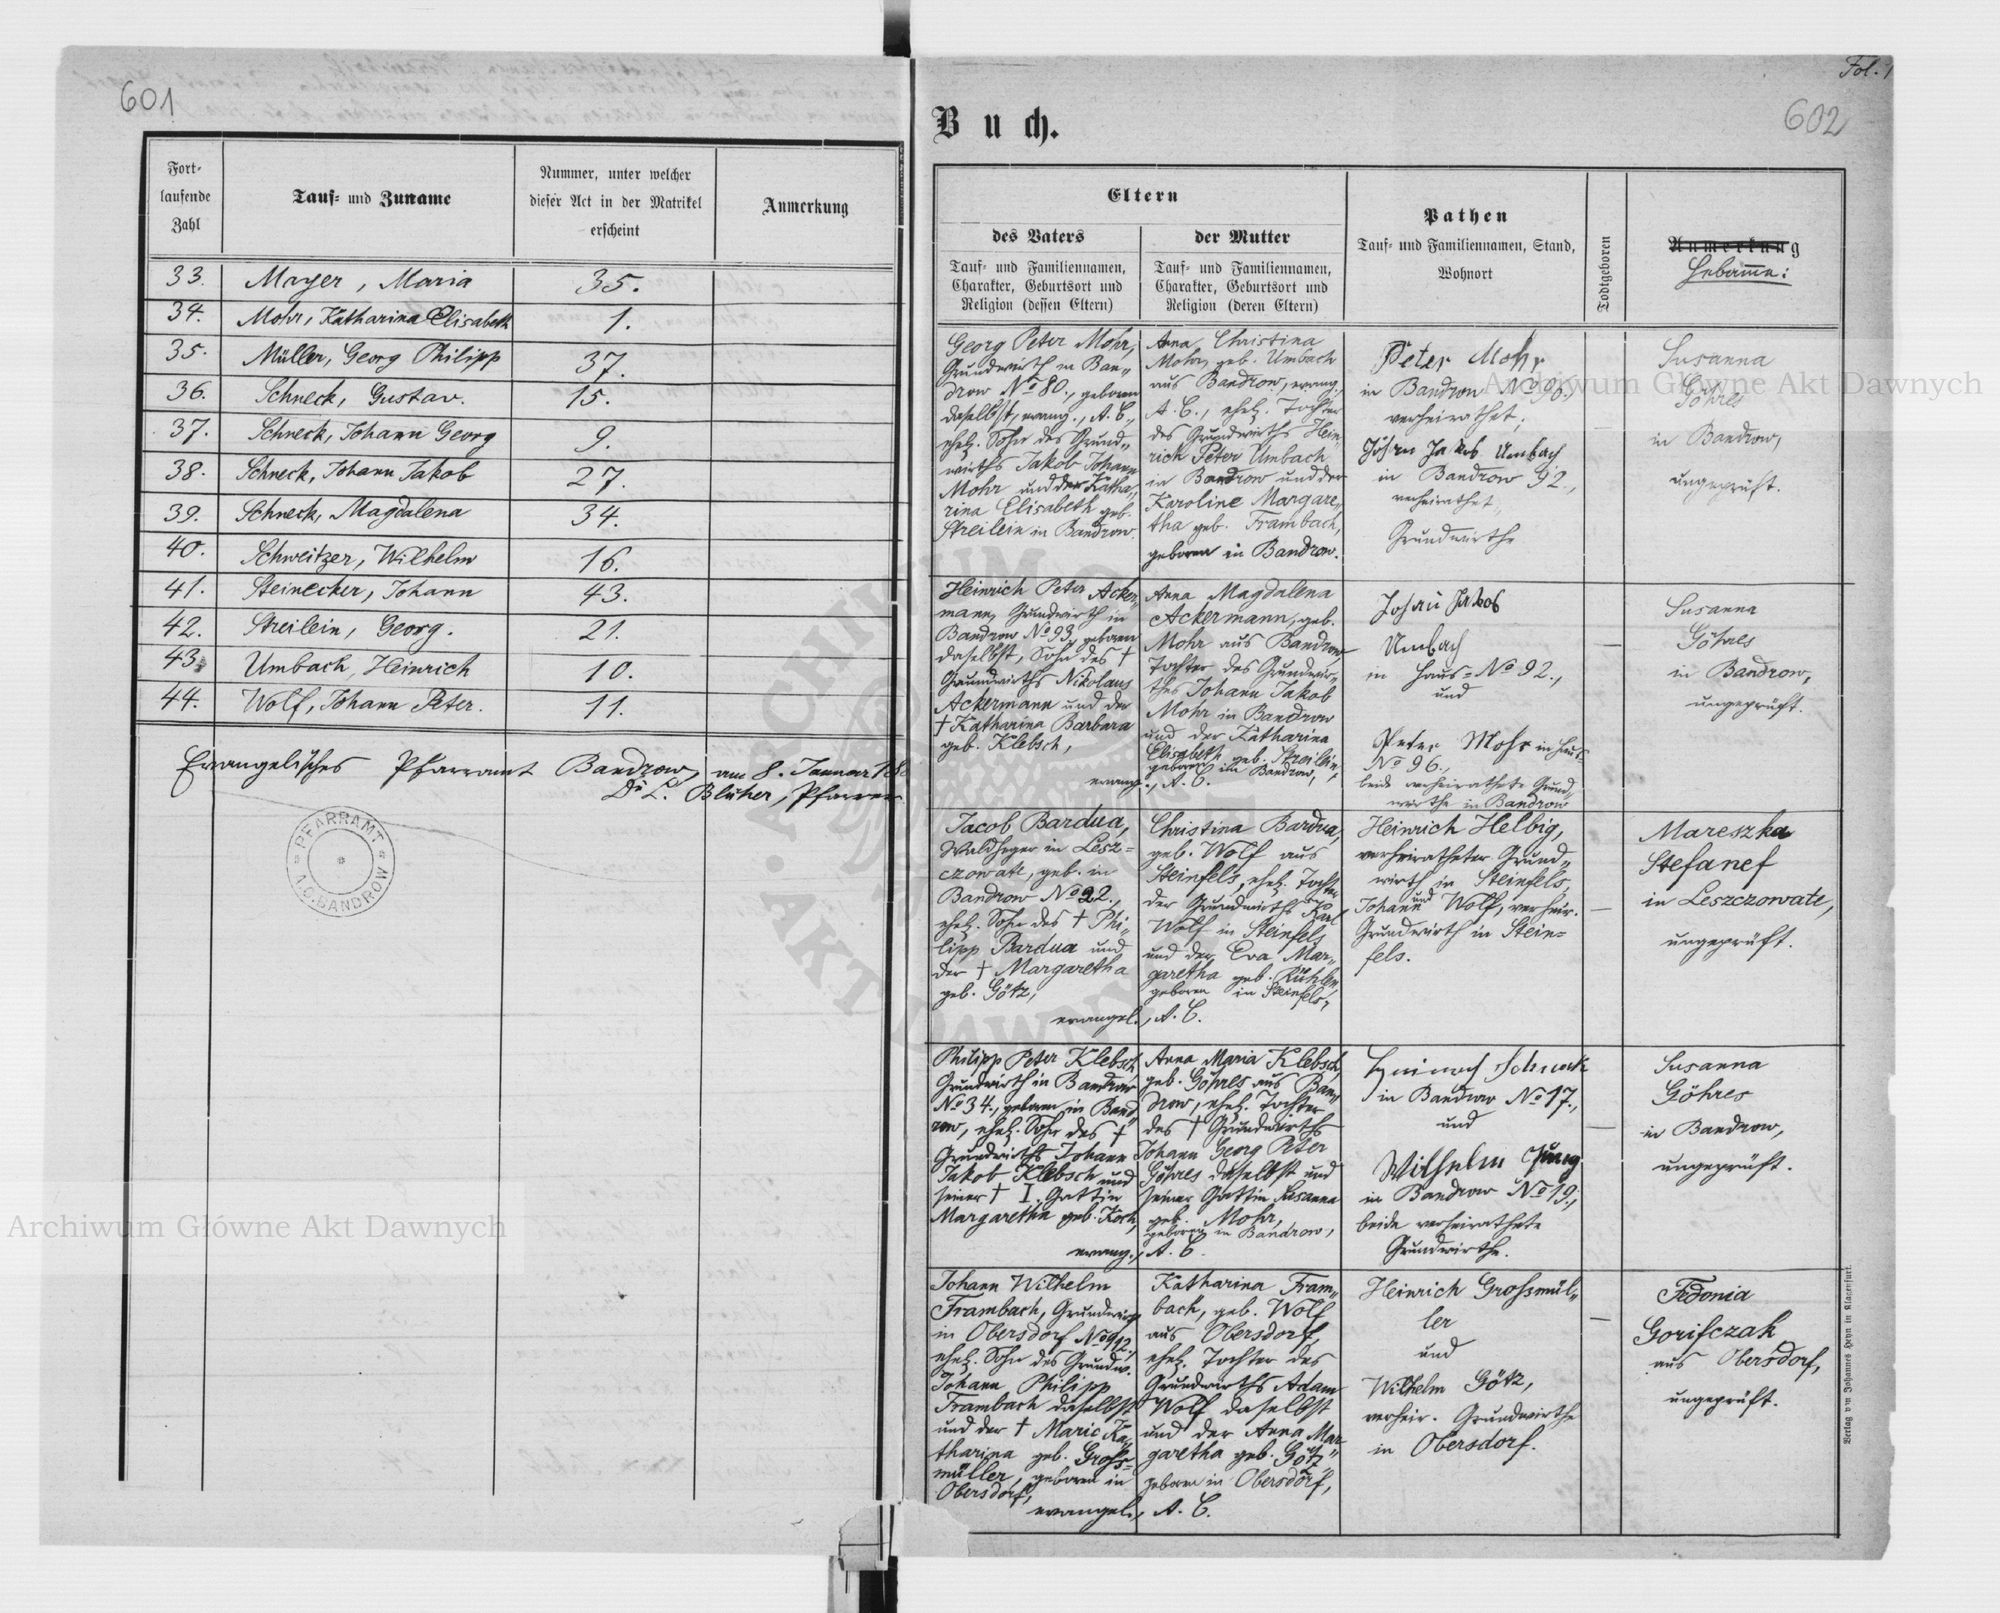 601
Fort-
laufende
Zahl
Tauf- und Zuname
Nummer, unter welcher
dieser Act in der Matrikel
erscheint
Anmerkung
33. Mayer, Maria 35.
34. Mohr, Katharina Elisabeth 1.
35. Müller, Georg Philipp 37.
36. Schneck, Gustav. 15.
37. Schneck, Johann Georg 9.
38. Schneck, Johann Jakob 27.
39. Schneck, Magdalena 34.
40. Schweitzer, Wilhelm 16.
41. Steinecker, Johann 43.
42. Streilein, Georg. 21.
43. Umbach, Heinrich 10.
44. Wolf, Johann Peter. 11.
Evangelisches Pfarramt Bandrow, am 8. Januar 18
Dr L. Blüher, Pfarrer
PFARRAMT
A.C. BANDROW
Fol. 1
602
Buch.
Eltern
des Vaters
Tauf- und Familiennamen,
Charakter, Geburtsort und
Religion (dessen Eltern)
der Mutter
Tauf- und Familiennamen,
Charakter, Geburtsort und
Religion (deren Eltern)
Pathen
Tauf- und Familiennamen, Stand,
Wohnort
Todtgeboren
Anmerkung
Hebamme:
Georg Peter Mohr,
Grundwirth in Ban-
drow No 80., geboren
daselbst, evang., A. C.,
ehel. Sohn des Grund-
wirths Jakob Johann
Mohr und der Katha-
rina Elisabeth geb.
Streilein in Bandrow.
Anna Christina
Mohr, geb. Umbach
aus Bandrow, evang.
A. C., ehel. Tochter
des Grundwirths Hein-
rich Peter Umbach
in Bandrow und der
Karoline Margare-
tha geb. Frambach,
geboren in Bandrow.
Peter Mohr
in Bandrow No 96.,
verheirathet;
Johann Jakob Umbach
in Bandrow 92.,
verheirathet,
Grundwirthe
Susanna
Göhres
in Bandrow,
ungeprüft.
Heinrich Peter Acker-
mann, Grundwirth in
Bandrow No 93, geboren
daselbst, Sohn des †
Grundwirths Nikolaus
Ackermann und der
† Katharina Barbara
geb. Klebsch,
evang.
Anna Magdalena
Ackermann, geb.
Mohr aus Bandrow
Tochter des Grundwir-
thes Johann Jakob
Mohr in Bandrow
und der Katharina
Elisabeth geb. Streilein,
geboren in Bandrow,
A. C.
Johann Jakob
Umbach
in Haus-No 92.,
und
Peter Mohr in Haus-
No 96.,
beide verheirathete Grund-
wirthe in Bandrow
—
Susanna
Göhres
in Bandrow,
ungeprüft.
Jacob Bardua,
Waldheger in Lesz-
czowate, geb. in
Bandrow No 22.,
ehel. Sohn des † Phi-
lipp Bardua und
der † Margaretha
geb. Götz,
evangel.
Christina Bardua,
geb. Wolf aus
Steinfels, ehel. Tochter
der Grundwirths Karl
Wolf in Steinfels
und der Eva Mar-
garetha geb. Kühler,
geboren in Steinfels,
A. C.
Heinrich Helbig,
verheiratheter Grund-
wirth in Steinfels,
und
Johann Wolf, verheir.
Grundwirth in Stein-
fels.
—
Mareszka
Stefanef
in Leszczowate,
ungeprüft.
Philipp Peter Klebsch,
Grundwirth in Bandrow
No 34., geboren in Band-
row, ehel. Sohn des †
Grundwirths Johann
Jakob Klebsch und
seiner † I. Gattin
Margaretha geb. Koch,
evang.,
Anna Maria Klebsch,
geb. Göhres aus Ban-
drow, ehel. Tochter
des † Grundwirths
Johann Georg Peter
Göhres daselbst und
seiner Gattin Susanna
geb. Mohr,
geboren in Bandrow,
A. C.
Heinrich Schneck
in Bandrow No 17.,
und
Wilhelm Jung
in Bandrow No 19.,
beide verheirathete
Grundwirthe.
—
Susanna
Göhres
in Bandrow,
ungeprüft.
Johann Wilhelm
Frambach, Grundwirth
in Obersdorf No 912.,
ehel. Sohn des Grundw.
Johann Philipp
Frambach daselbst
und der † Marie Ka-
tharina geb. Gross-
müller, geboren in
Obersdorf,
evangel.,
Katharina Fram-
bach, geb. Wolf
aus Obersdorf,
ehel. Tochter des
Grundwirths Adam
Wolf daselbst
und der Anna Mar-
garetha geb. Götz,
geboren in Obersdorf,
A. C.
Heinrich Grossmül-
ler
und
Wilhelm Götz,
verheir. Grundwirthe
in Obersdorf.
—
Fedonia
Gorifczak
aus Obersdorf,
ungeprüft.
Verlag von Johannes Heyn in Klagenfurt.
Archiwum Główne Akt Dawnych
Archiwum Główne Akt Dawnych
ARCHIWUM
AKT DAWNYCH